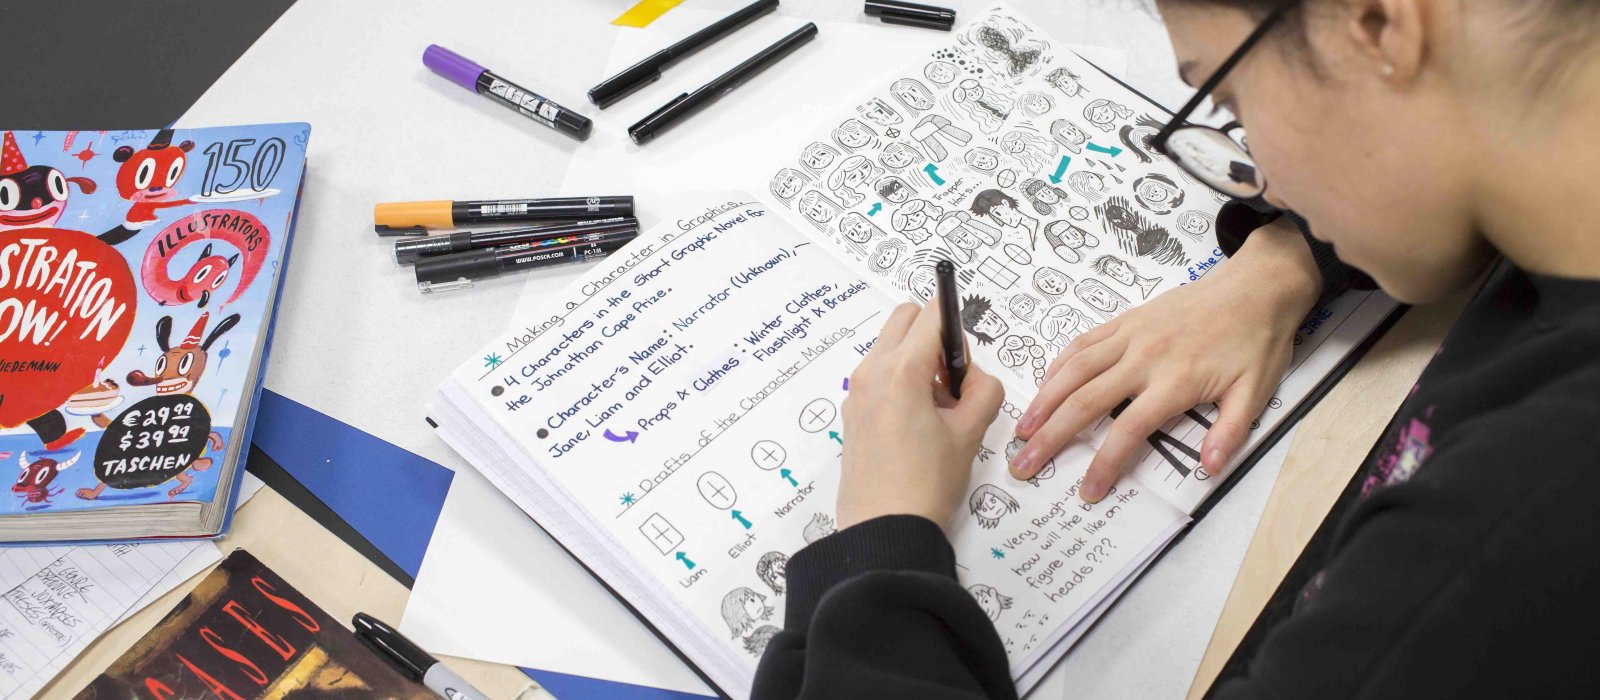 150
ILLUSTRATORS
STRATION
OW!
IEDEMANN
€ 29.99
$ 39.99
TASCHEN
ASES
WWW.POSCA.COM
PC-1M
Making a Character in Graphics.
4 Characters in the Short Graphic Novel for
the Johnathan Cape Prize.
Character's Name: Narrator (Unknown),
Jane, Liam and Elliot.
Props & Clothes: Winter Clothes,
Flashlight & Bracelet
Drafts of the Character Making
Liam
Elliot
Narrator
Trapper
hats...
of the C
JANE
Very Rough-uns
how will the b
figure look like on the
heads???